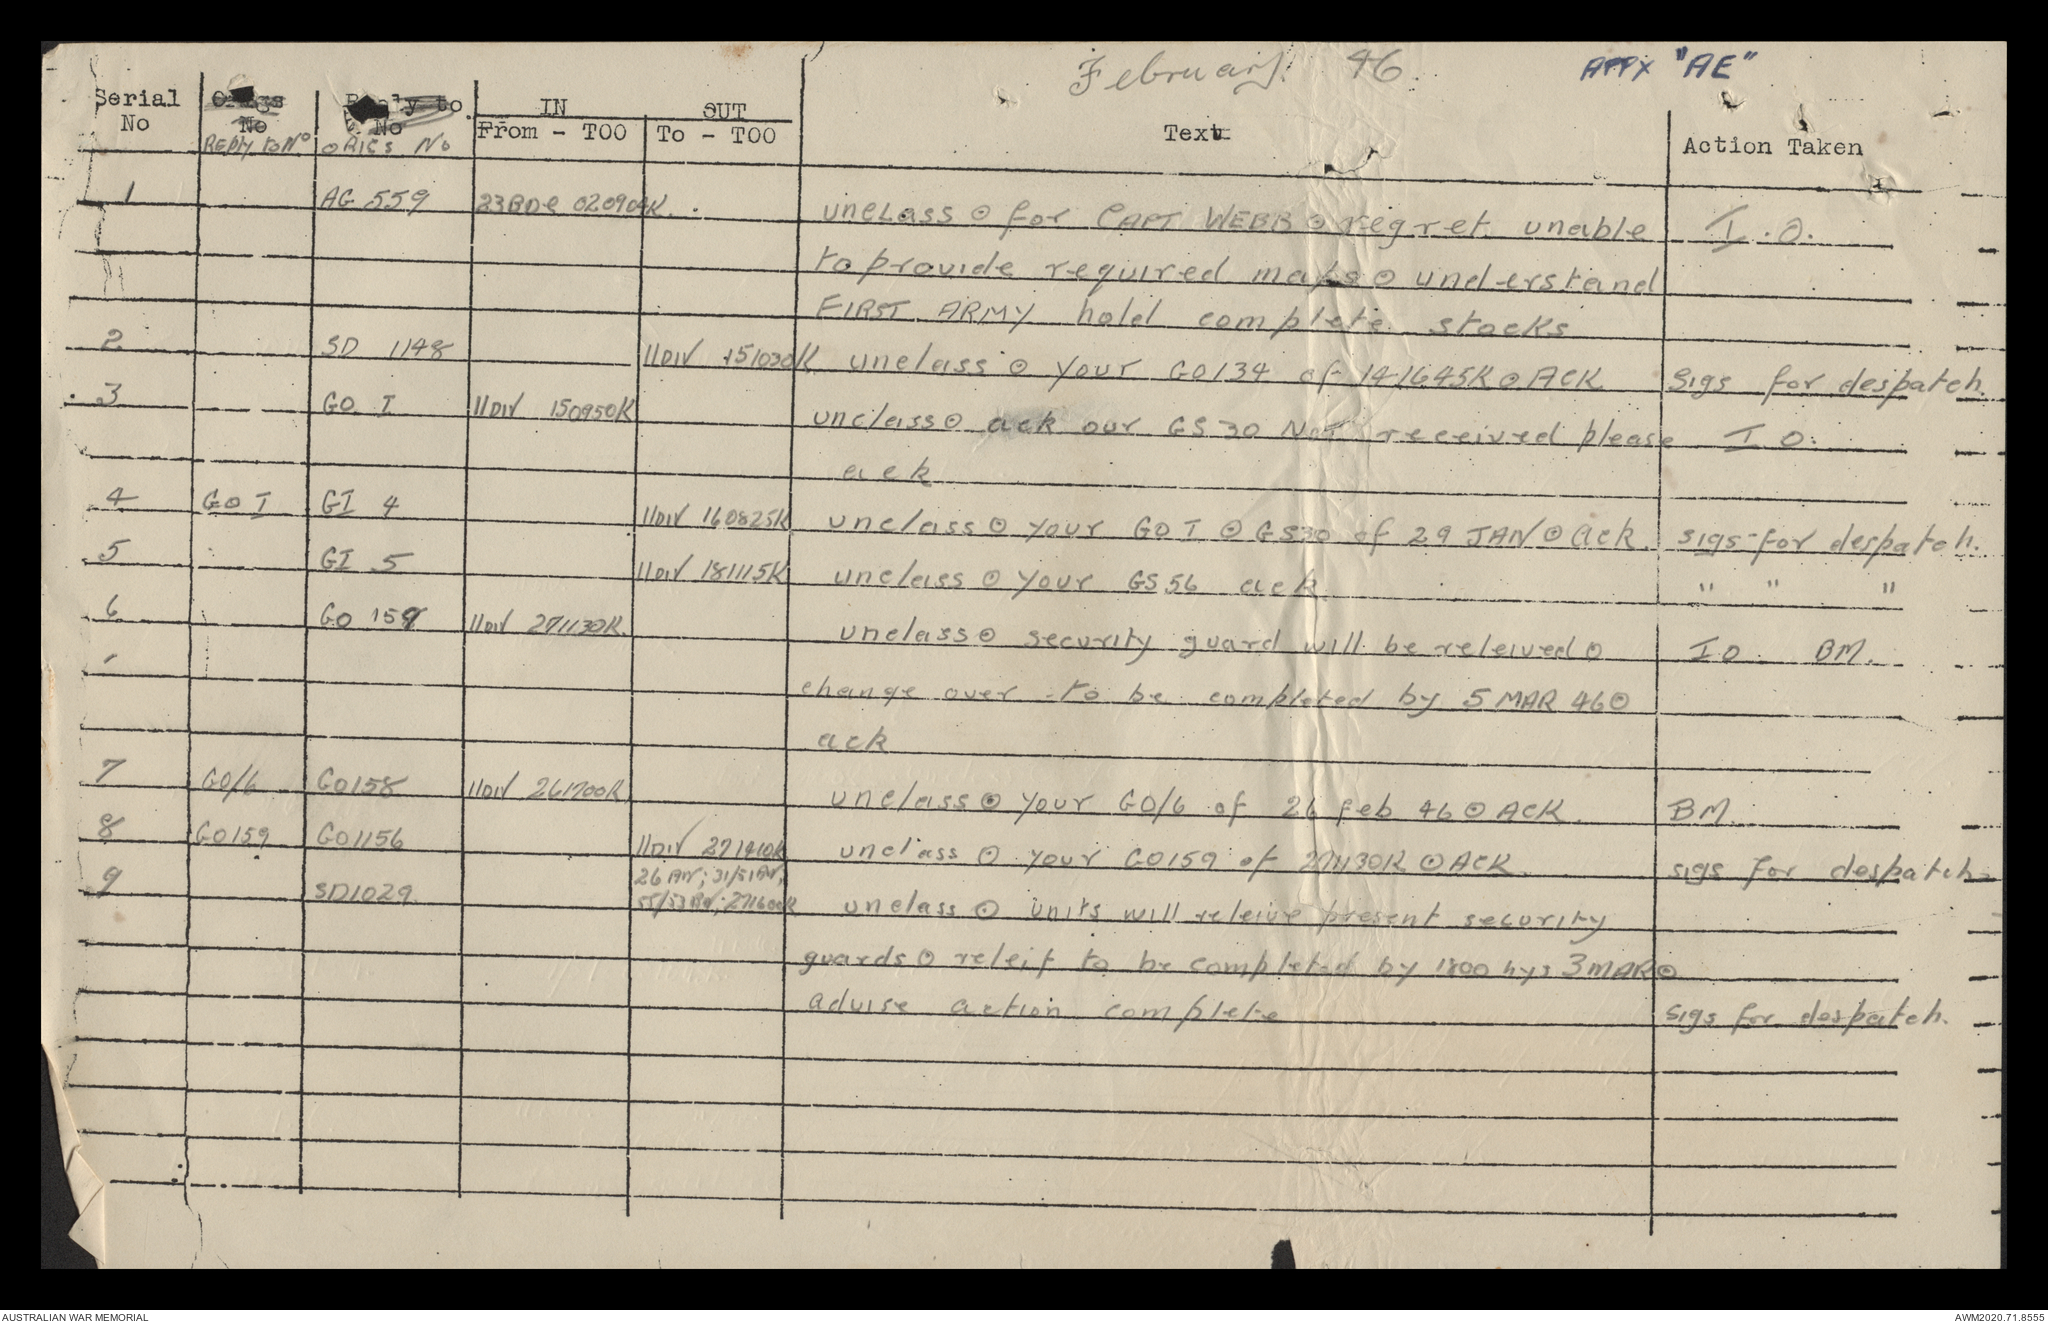 February. 46.
APPX "AE"
Serial No
Origs No
Reply to No
Reply to No
ORIGs No
IN
From - TOO
OUT
To - TOO
Text
Action Taken
1 AG 559 23BDE 020904K. unclass ⊙ for CAPT WEBB ⊙ regret unable I.O.
to provide required maps ⊙ understand
FIRST ARMY hold complete stocks
2 SD 1148 11DIV 151030K unclass ⊙ your GO134 of 141645K ⊙ ACK Sigs for despatch.
3 GO I 11DIV 150950K unclass ⊙ ack our GS 30 NOT received please I O.
ack
4 GO I GI 4 11DIV 160825K unclass ⊙ your GO I ⊙ GS30 of 29 JAN ⊙ ack. sigs for despatch.
5 GI 5 11DIV 181115K unclass ⊙ your GS56 ack " " "
6 GO 159 11DIV 271130K. unclass ⊙ security guard will be releived ⊙ IO BM.
change over to be completed by 5 MAR 46 ⊙
ack
7 GO/6 GO158 11DIV 261700K unclass ⊙ your GO/6 of 26 feb 46 ⊙ ACK. BM.
8 GO159 GO1156 11DIV 271410K unclass ⊙ your GO159 of 271130K ⊙ ACK. sigs for despatch
9 SD1029 26 Bn; 31/51 Bn;
55/53 Bn; 271600K unclass ⊙ units will releive present security
guards ⊙ releif to be completed by 1800 hrs 3 MAR ⊙
advise action complete Sigs for despatch.
AUSTRALIAN WAR MEMORIAL
AWM2020.71.8555